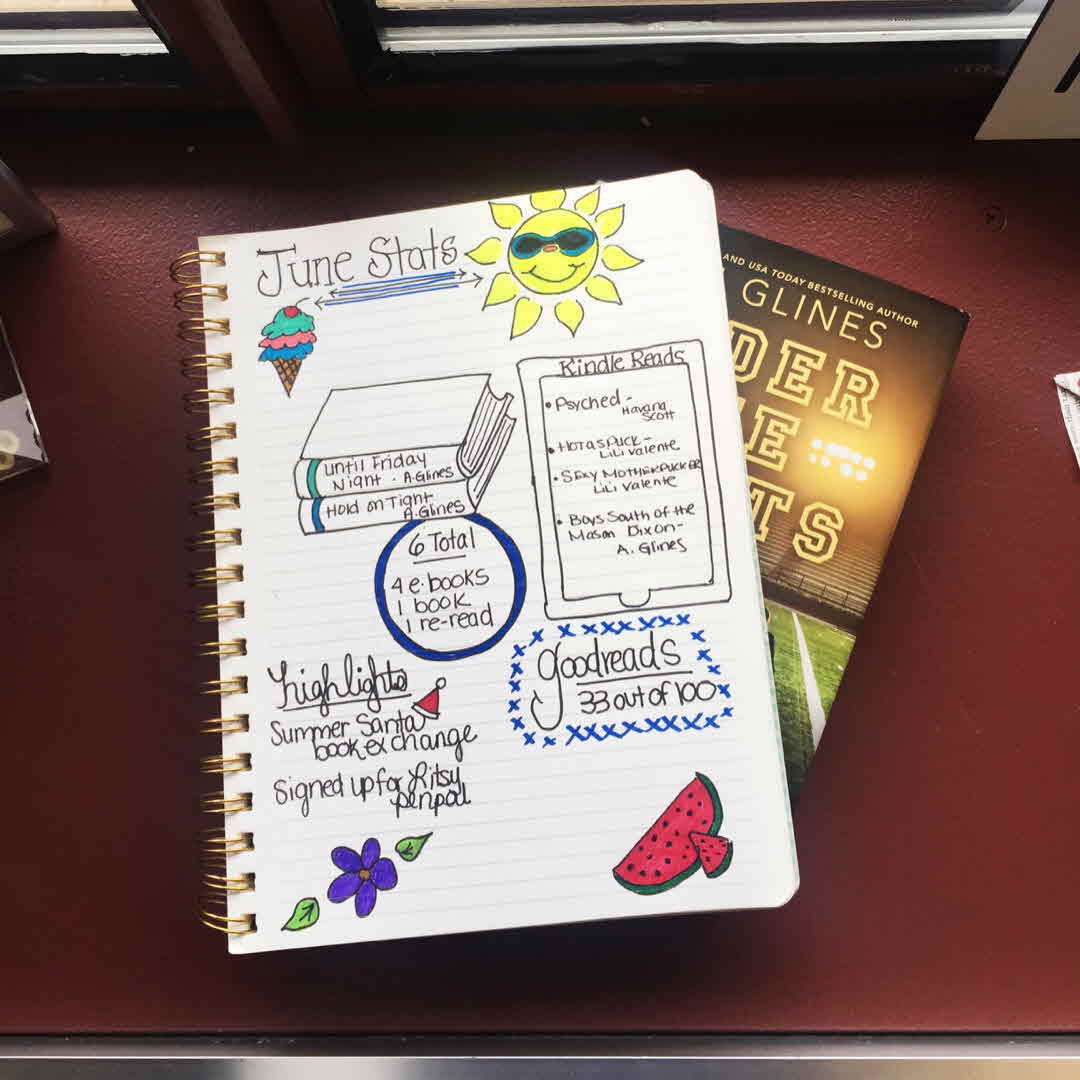 June Stats
Until Friday
Night - A.Glines
Hold on Tight
A.Glines
6 Total
4 e-books
1 book
1 re-read
Kindle Reads
• Psyched -
Havana
Scott
• Hot as Puck -
Lili Valente
• Sexy Motherpucker
Lili Valente
• Boys South of the
Mason Dixon -
A. Glines
goodreads
33 out of 100
Highlights
Summer Santa
book exchange
Signed up for Litsy
penpal
AND USA TODAY BESTSELLING AUTHOR
GLINES